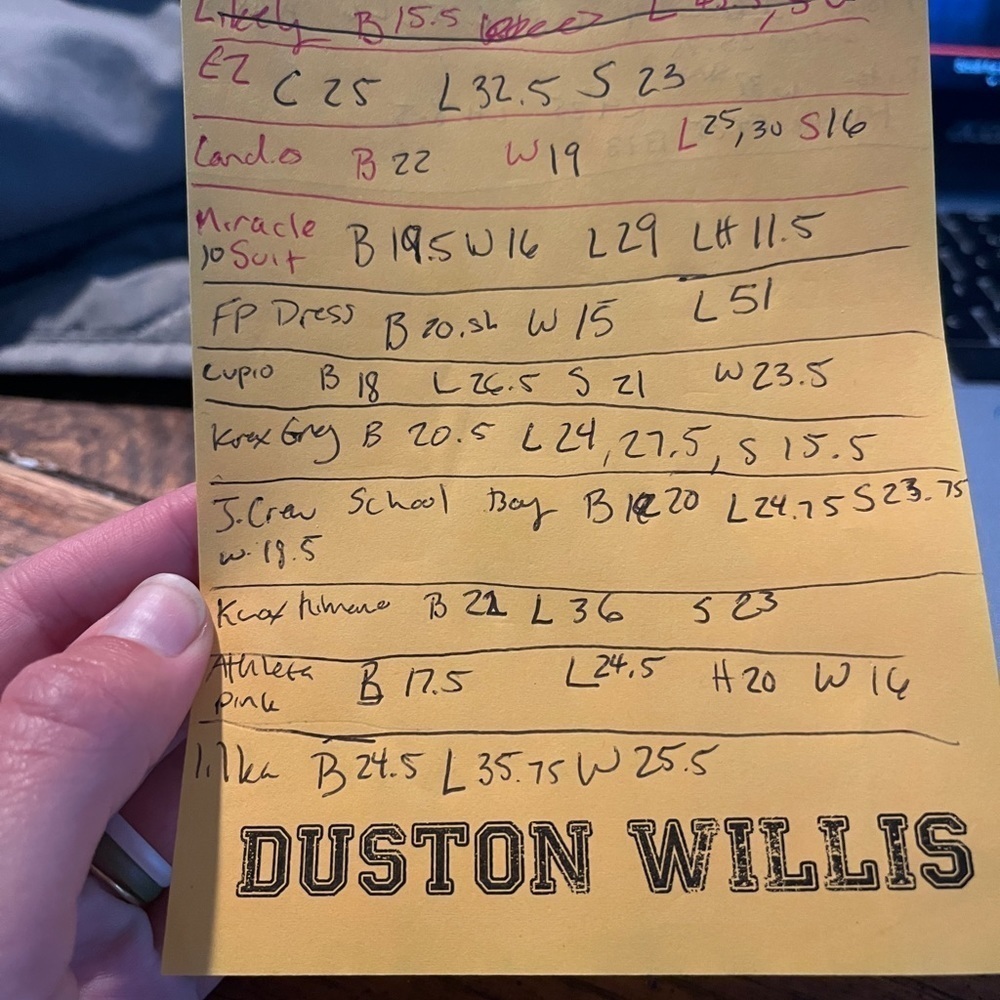 Likely B 15.5
EZ C 25 L 32.5 S 23
Cand.o B 22 W 19 L 25, 30 S 16
Miracle B 19.5 W 16 L 29 LH 11.5
10 Suit
FP Dress B 20.5 W 15 L 51
Cupio B 18 L 26.5 S 21 W 23.5
Knox Grey B 20.5 L 24, 27.5, S 15.5
J.Crew School Boy B 20 L 24.75 S 23.75
W 18.5
Knox Kimono B 21 L 36 S 23
Athleta B 17.5 L 24.5 H 20 W 16
Pink
lilka B 24.5 L 35.75 W 25.5
DUSTON WILLIS